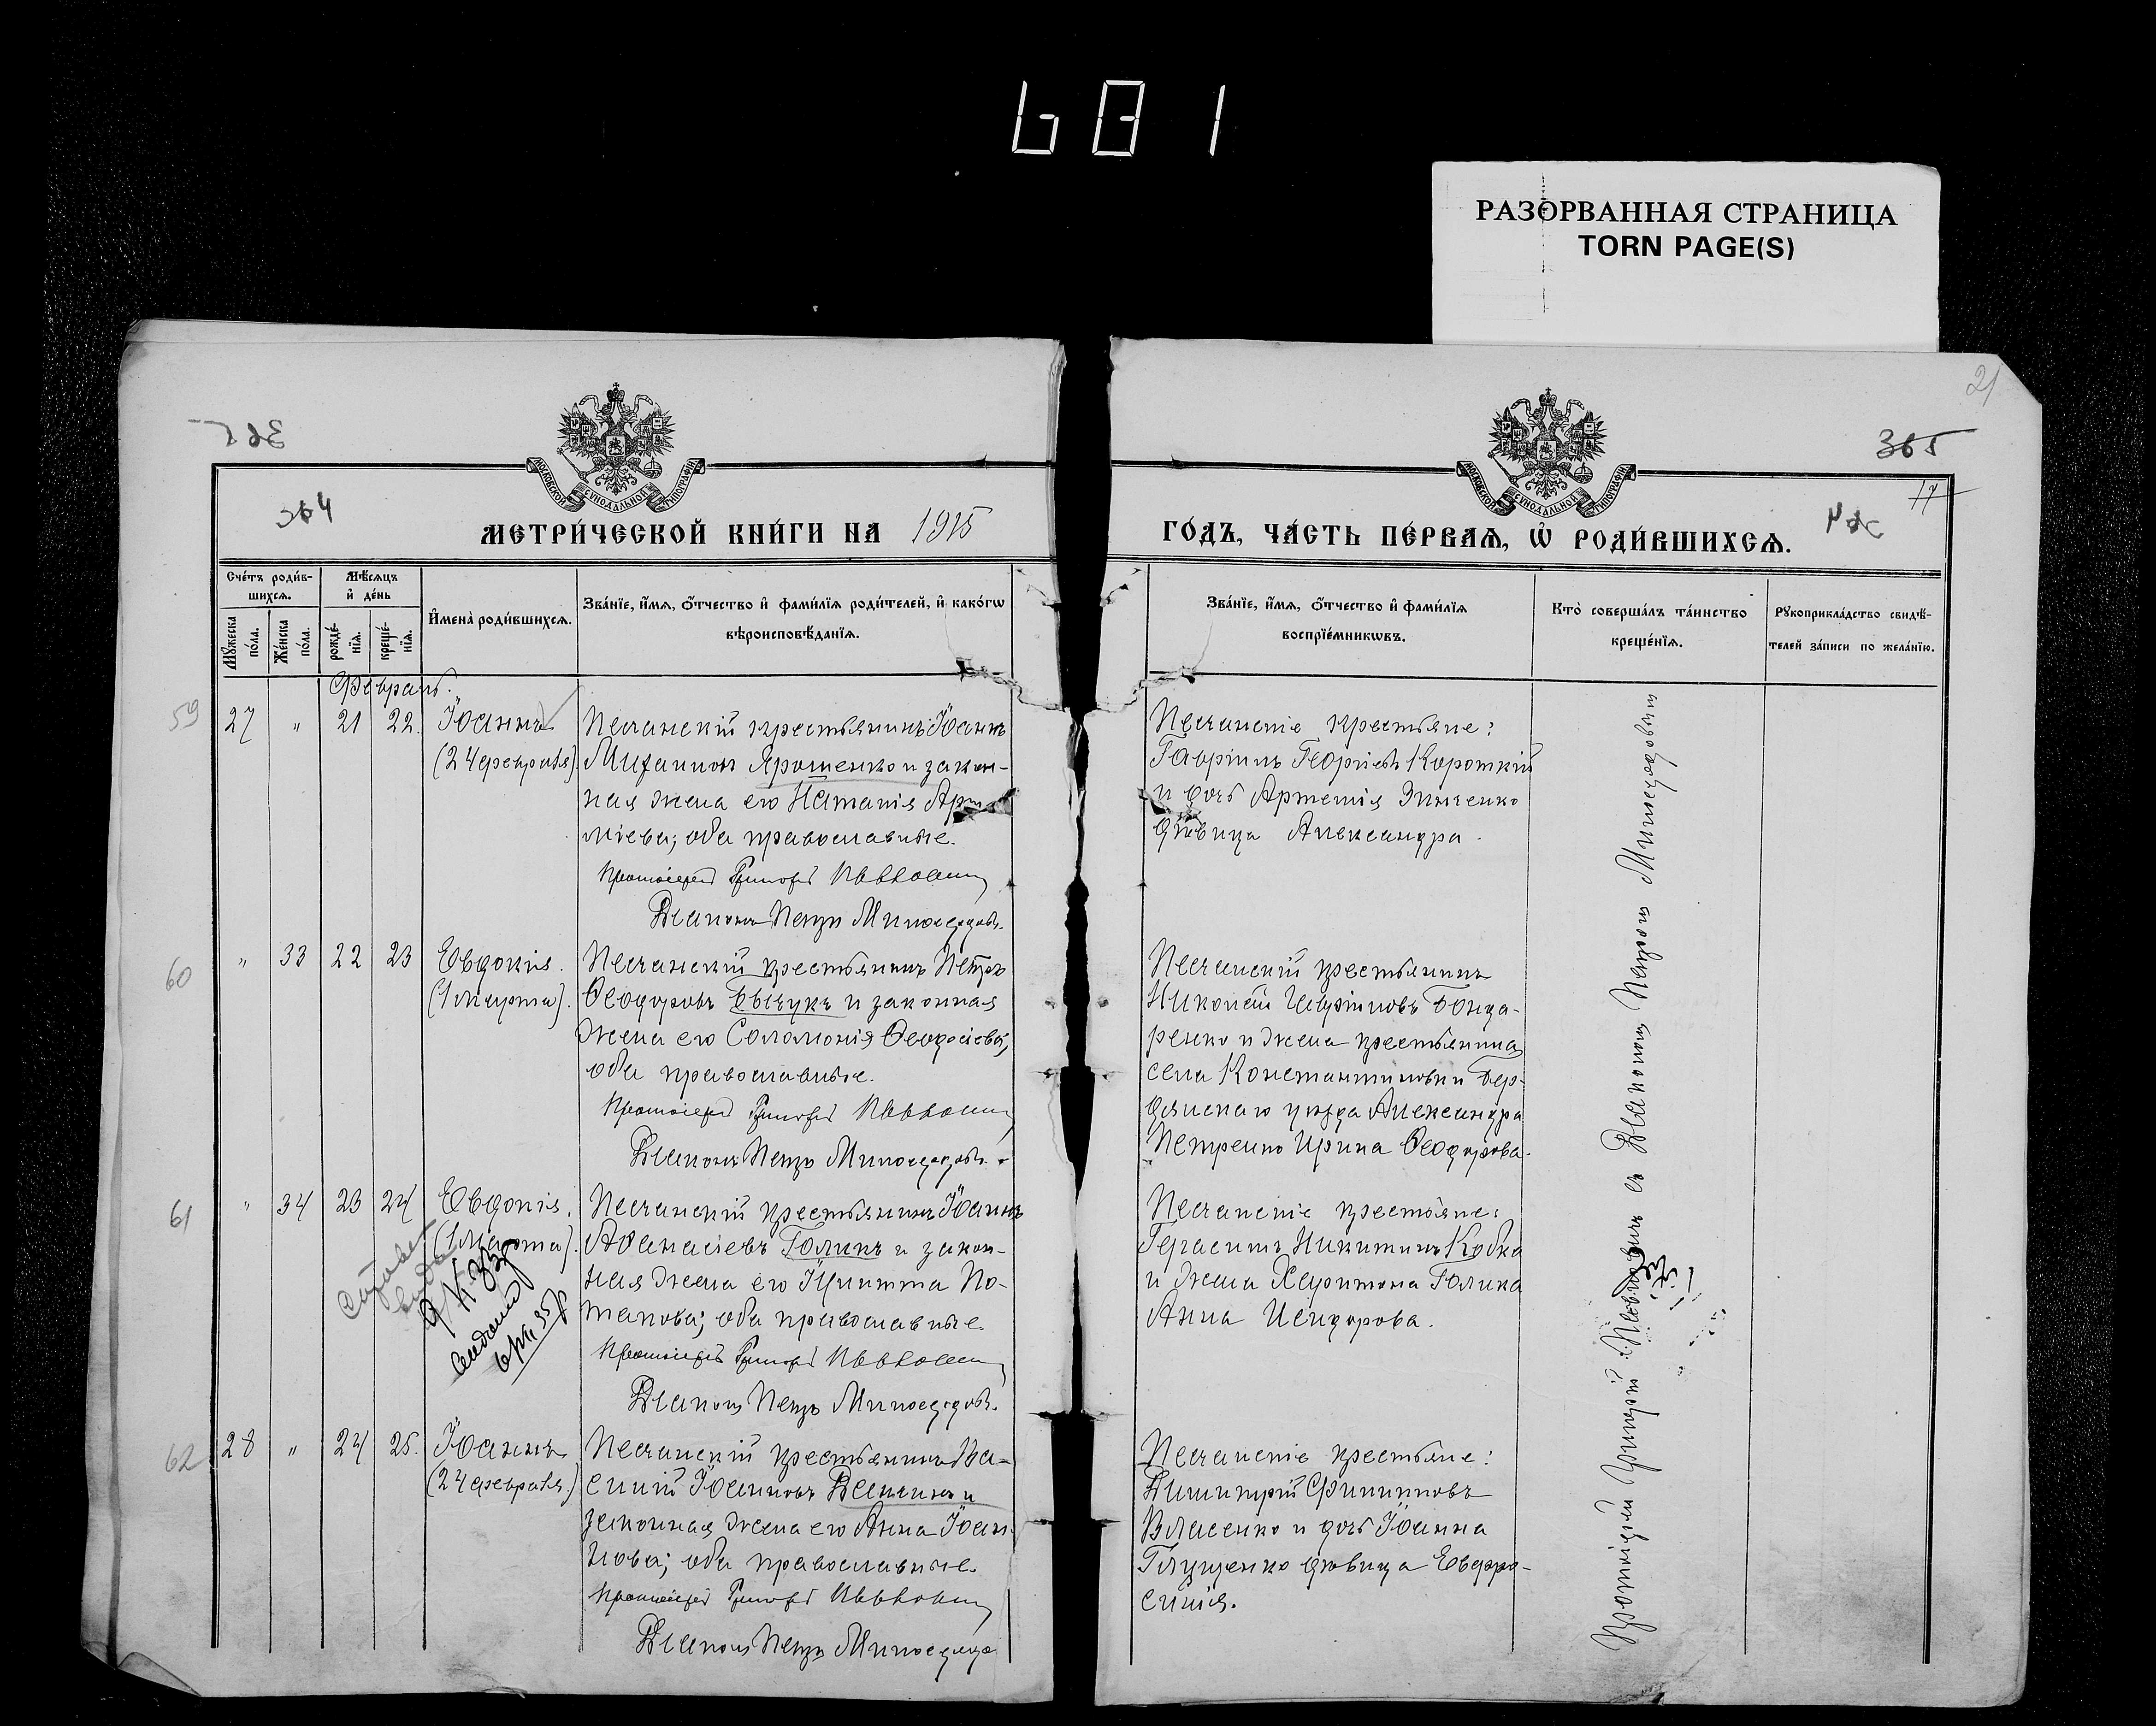 681
РАЗОРВАННАЯ СТРАНИЦА
TORN PAGE(S)
21
365
17
364
МОСКОВСКОЙ СѴНОДАЛЬНОЙ ТИПОГРАФІИ
МОСКОВСКОЙ СѴНОДАЛЬНОЙ ТИПОГРАФІИ
МЕТРИ́ЧЕСКОЙ КНИ́ГИ НА 1915
ГО́ДЪ, ЧА́СТЬ ПЕ́РВАѦ, Ѡ҆ РОДИ́ВШИХСѦ.
Сче́тъ роди́в-
шихсѧ.
Мꙋ́жеска по́ла.
Же́нска по́ла.
Мѣ́сѧцъ
и҆ де́нь
рожде́-
нїѧ.
креще́-
нїѧ.
И҆мена̀ роди́вшихсѧ.
Зва́нїе, и҆́мѧ, ѻ҆́тчество и҆ фами́лїѧ роди́телей, и҆ како́гѡ
вѣроисповѣ́данїѧ.
Зва́нїе, и҆́мѧ, ѻ҆́тчество и҆ фами́лїѧ
воспрїе́мникѡвъ.
Кто̀ соверша́лъ та́инство
креще́нїѧ.
Рꙋкоприкла́дство свидѣ́-
телей за́писи по жела́нїю.
Февраль.
59
27 " 21 22. Іоаннъ
(24 февраля).
Песчанскій крестьянинъ Іоаннъ
Михаиловъ Ярошенко и закон-
ная жена его Наталія Арте
міева; оба православные.
Протоіерей Григорій Павловичъ
Діаконъ Петръ Милосердовъ.
Песчанскіе крестьяне:
Гавріилъ Георгіевъ Короткій
и дочь Артемія Зинченко
дѣвица Александра.
60
" 33 22 23 Евдокія.
(1 марта).
Песчанскій крестьянинъ Петръ
Ѳеодоровъ и законная
жена его Соломонія Ѳеодосіева;
оба православные.
Протоіерей Григорій Павловичъ
Діаконъ Петръ Милосердовъ.
Песчанскій крестьянинъ
Николай Бонда-
ренко и жена крестьянина
села Константиновки Бер-
дянскаго уѣзда Александра
Петренко Ирина Ѳеодорова.
61
" 34 23 24 Евдокія.
(1 марта).
Песчанскій крестьянинъ Іоаннъ
Аѳанасіевъ Голикъ и закон-
ная жена его Іулитта По-
тапова; оба православные.
Протоіерей Григорій Павловичъ
Діаконъ Петръ Милосердовъ.
Песчанскіе крестьяне:
Герасимъ Никитинъ Кобка
и жена Харитона Голика
Анна Исидорова.
62
28 " 24 25. Іоаннъ
(24 февраля.)
Песчанскій крестьянинъ Ва-
силій Іоанновъ и
законная жена его Анна Іоан-
нова; оба православные.
Протоіерей Григорій Павловичъ
Діаконъ Петръ Милосердовъ
Песчанскіе крестьяне:
Димитрій Филипповъ
Власенко и дочь Іоанна
Глущенко дѣвица Евфро-
синія.
Протоіерей Григорій Павловичъ съ Діакономъ Петромъ Милосердовымъ